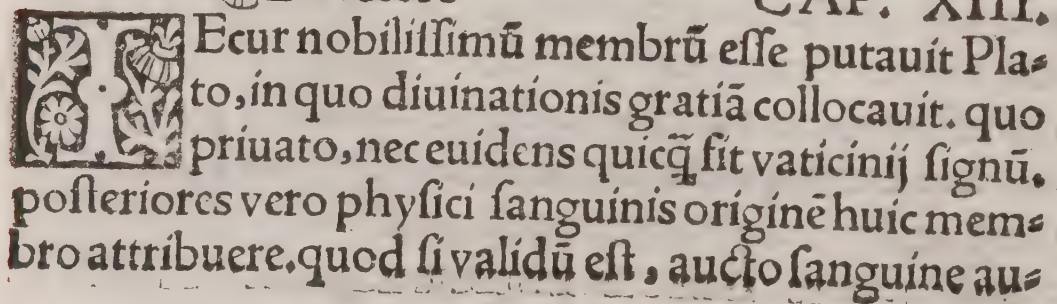 CAP. XIII.
IEcur nobiliſſimū membrū eſſe putauit Pla⸗
to, in quo diuinationis gratiā collocauit. quo
priuato, nec euidens quicq̃ fit vaticinij ſignū.
poſteriores vero phyſici ſanguinis originē huic mem⸗
bro attribuere. quod ſi validū eſt, aucto ſanguine au⸗